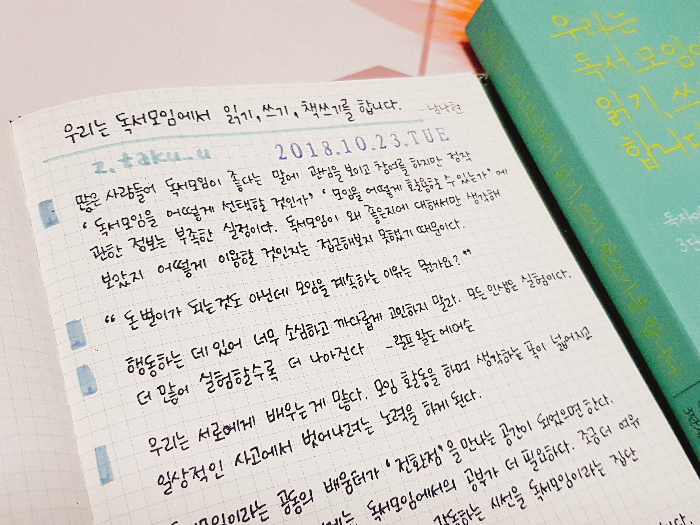 우리는 독서모임에서 읽기, 쓰기, 책쓰기를 합니다. - 남낙현
z.taku_u
2018.10.23.TUE
많은 사람들이 독서모임이 좋다는 말에 관심을 보이고 참여를 하지만 정작
'독서모임을 어떻게 선택할 것인가' '모임을 어떻게 활용할 수 있는가'에
관한 정보는 부족한 실정이다. 독서모임이 왜 좋은지에 대해서만 생각해
보았지 어떻게 이용할 것인지는 접근해보지 못했기 때문이다.
"돈벌이가 되는것도 아닌데 모임을 계속하는 이유는 뭔가요?"
행동하는 데 있어 너무 소심하고 까다롭게 고민하지 말라. 모든 인생은 실험이다.
더 많이 실험할수록 더 나아진다 - 랄프 왈도 에머슨
우리는 서로에게 배우는게 많다. 모임 활동을 하며 생각하는 폭이 넓어지고
일상적인 사고에서 벗어나려는 노력을 하게 된다.
독서모임이라는 공동의 배움터가 '전환점'을 만나는 공간이 되었으면 한다.
독서모임에서의 공부가 더 필요하다. 조금더 여유
각동하는 시선을 독서모임이라는 집단
우리는
독서모임에
읽기, 쓰
합니다